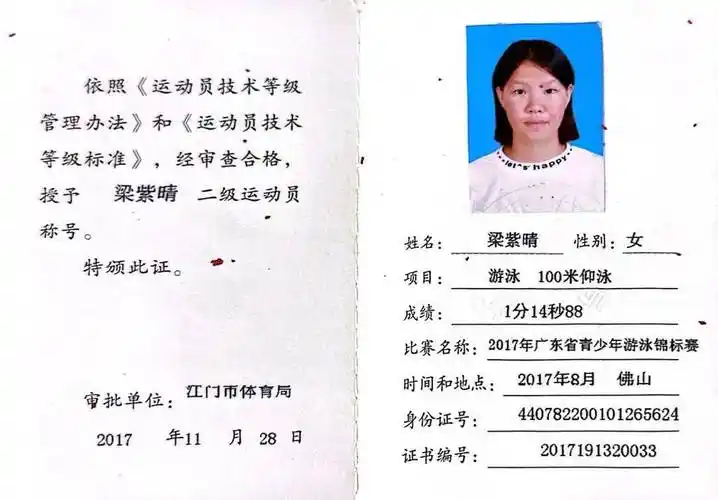 依照《运动员技术等级
管理办法》和《运动员技术
等级标准》，经审查合格，
授予 梁紫晴 二级运动员
称号。
特颁此证。
审批单位：江门市体育局
2017 年11 月 28 日
let's happy
姓名：梁紫晴 性别：女
项目：游泳 100米仰泳
成绩：1分14秒88
比赛名称：2017年广东省青少年游泳锦标赛
时间和地点：2017年8月 佛山
身份证号：440782200101265624
证书编号：2017191320033